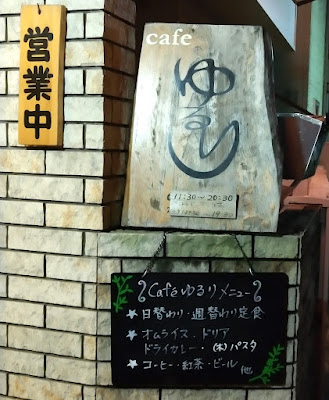 営業中
cafe
ゆるり
11:30~20:30
Caféゆるりメニュー
★日替わり・週替わり定食
★オムライス・ドリア
ドライカレー・(木)パスタ
★コーヒー・紅茶・ビール 他